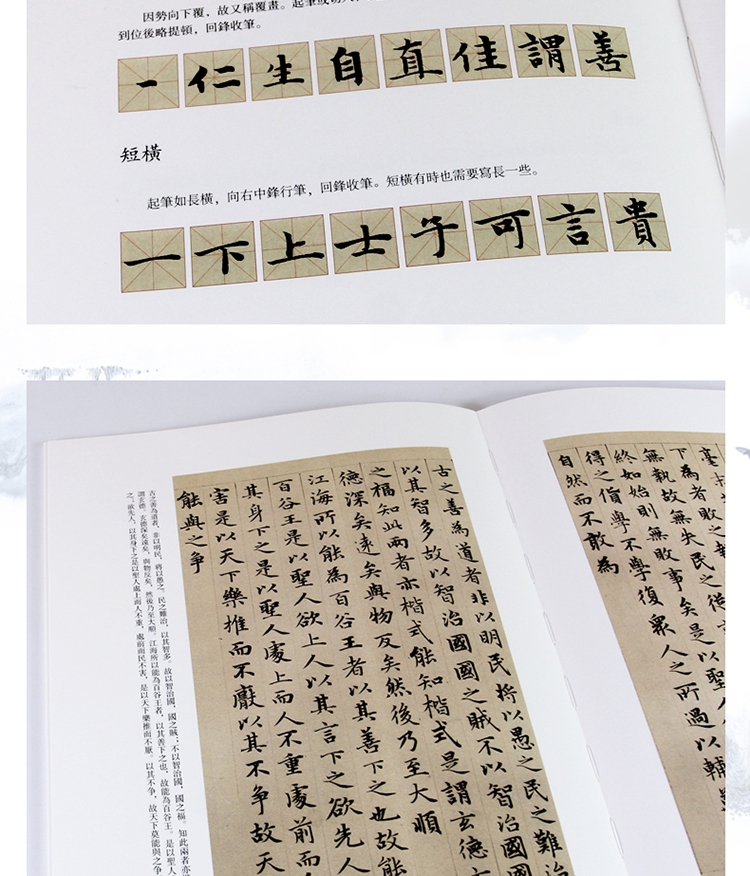 因勢向下覆，故又稱覆畫。起筆或切
到位後略提頓，回鋒收筆。
一仁生自直佳謂善
短橫
起筆如長橫，向右中鋒行筆，回鋒收筆。短橫有時也需要寫長一些。
一下上士子可言貴
下為者敗之
無執故無失民之從
終如始則無敗事矣是以聖人
得之貨學不學復眾人之所過以輔
自然而不敢為
古之善為道者非以明民將以愚之民之難治
以其智多故以智治國國之賊不以智治國國
之福知此兩者亦楷式能知楷式是謂玄德
德深矣遠矣與物反矣然後乃至大順
江海所以能為百谷王者以其善下之也故能
百谷王是以聖人欲上人以其言下之欲先人
其身下之是以聖人處上而人不重處前而
害是以天下樂推而不厭以其不爭故天
能與之爭
古之善為道者，非以明民，將以愚之。民之難治，以其智多。故以智治國，國之賊；不以智治國，國之福。知此兩者亦
謂玄德。玄德深矣遠矣，與物反矣，然後乃至大順。江海所以能為百谷王者，以其善下之也，故能為百谷王。是以聖人
之；欲先人，以其身下之是以聖人處上而人不重，處前而民不害，是以天下樂推而不厭。以其不爭，故天下莫能與之爭